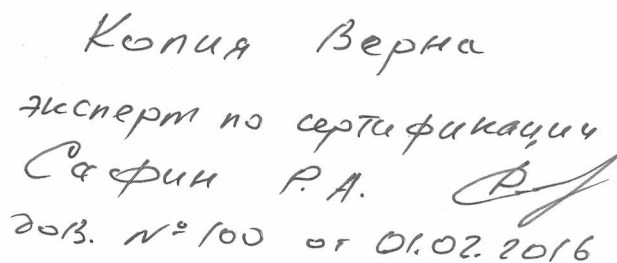 Копия Верна
эксперт по сертификации
Сафин Р.А.
дов. № 100 от 01.02.2016